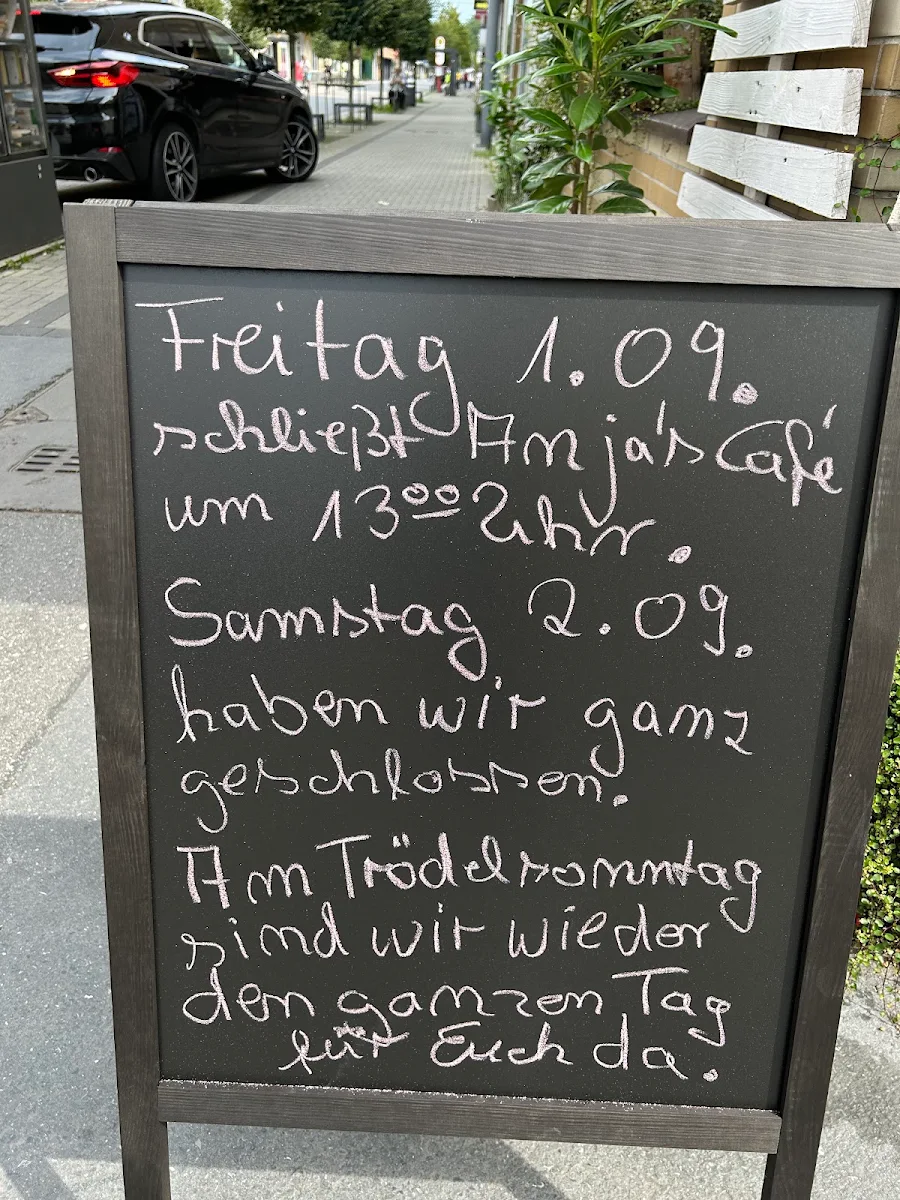 Freitag 1.09.
schließt Anja's Café
um 13⁰⁰ Uhr.
Samstag 2.09.
haben wir ganz
geschlossen.
Am Trödelsonntag
sind wir wieder
den ganzen Tag
für Euch da.